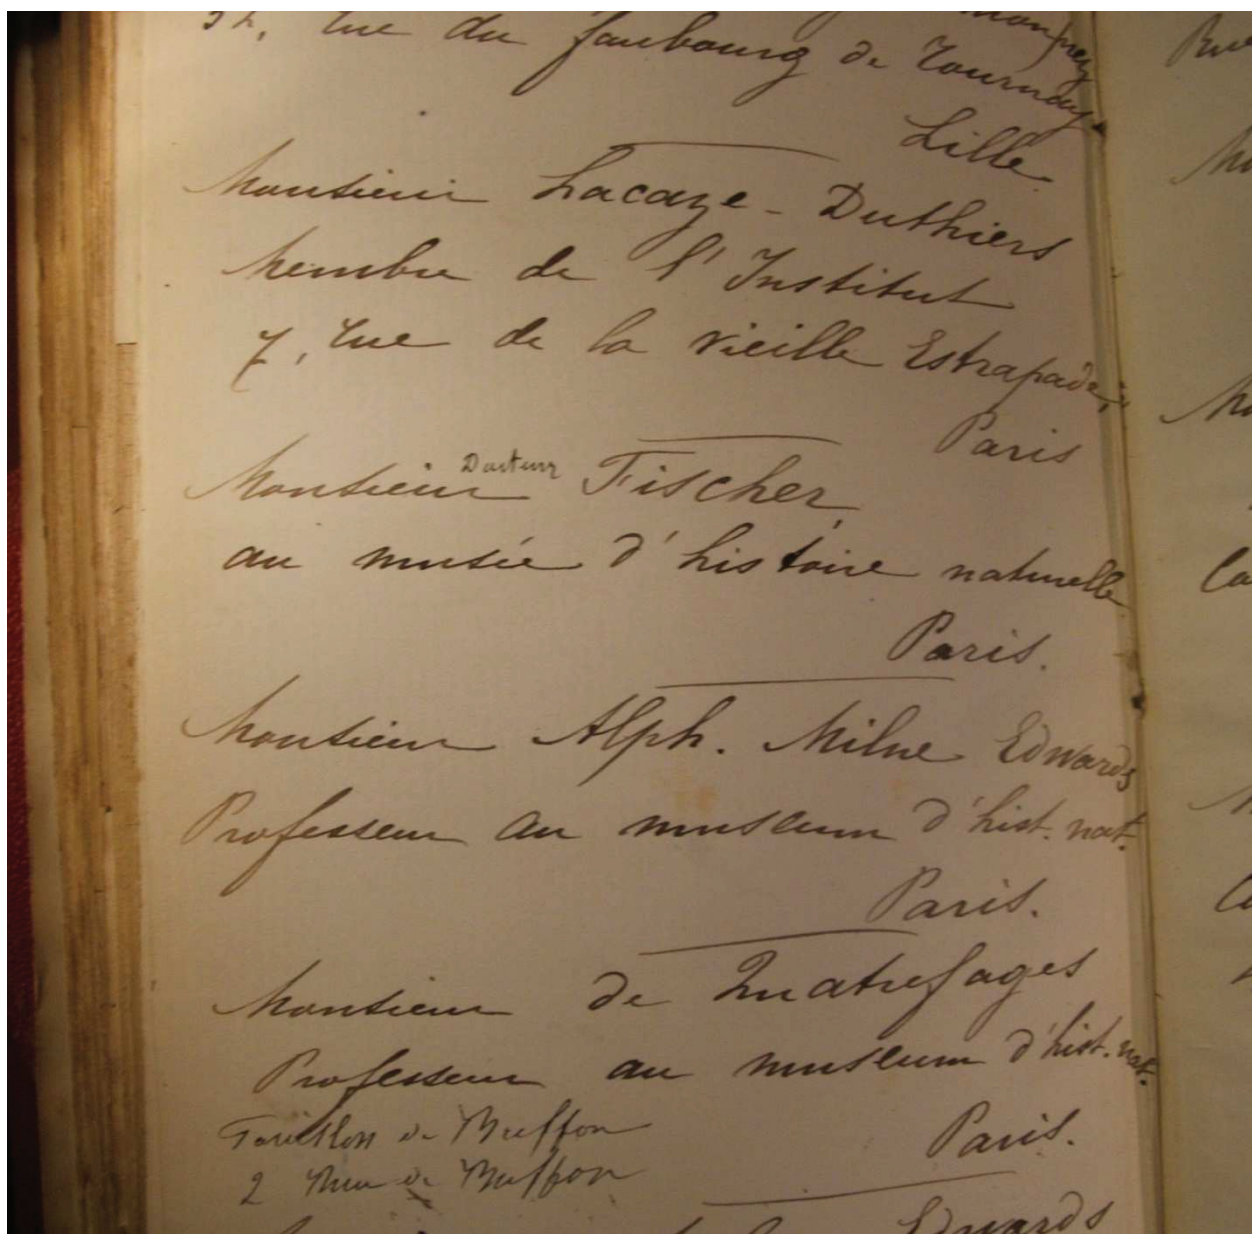 rue du faubourg de Tournay
Lille
Monsieur Lacaze-Duthiers
Membre de l'Institut
7, rue de la vieille Estrapade,
Paris
Monsieur Docteur Fischer,
au musée d'histoire naturelle
Paris.
Monsieur Alph. Milne Edwards
Professeur au museum d'hist. nat.
Paris.
Monsieur de Quatrefages
Professeur au museum d'hist. nat.
Paris.
Pavillon de Buffon
2 Rue de Buffon
Edwards